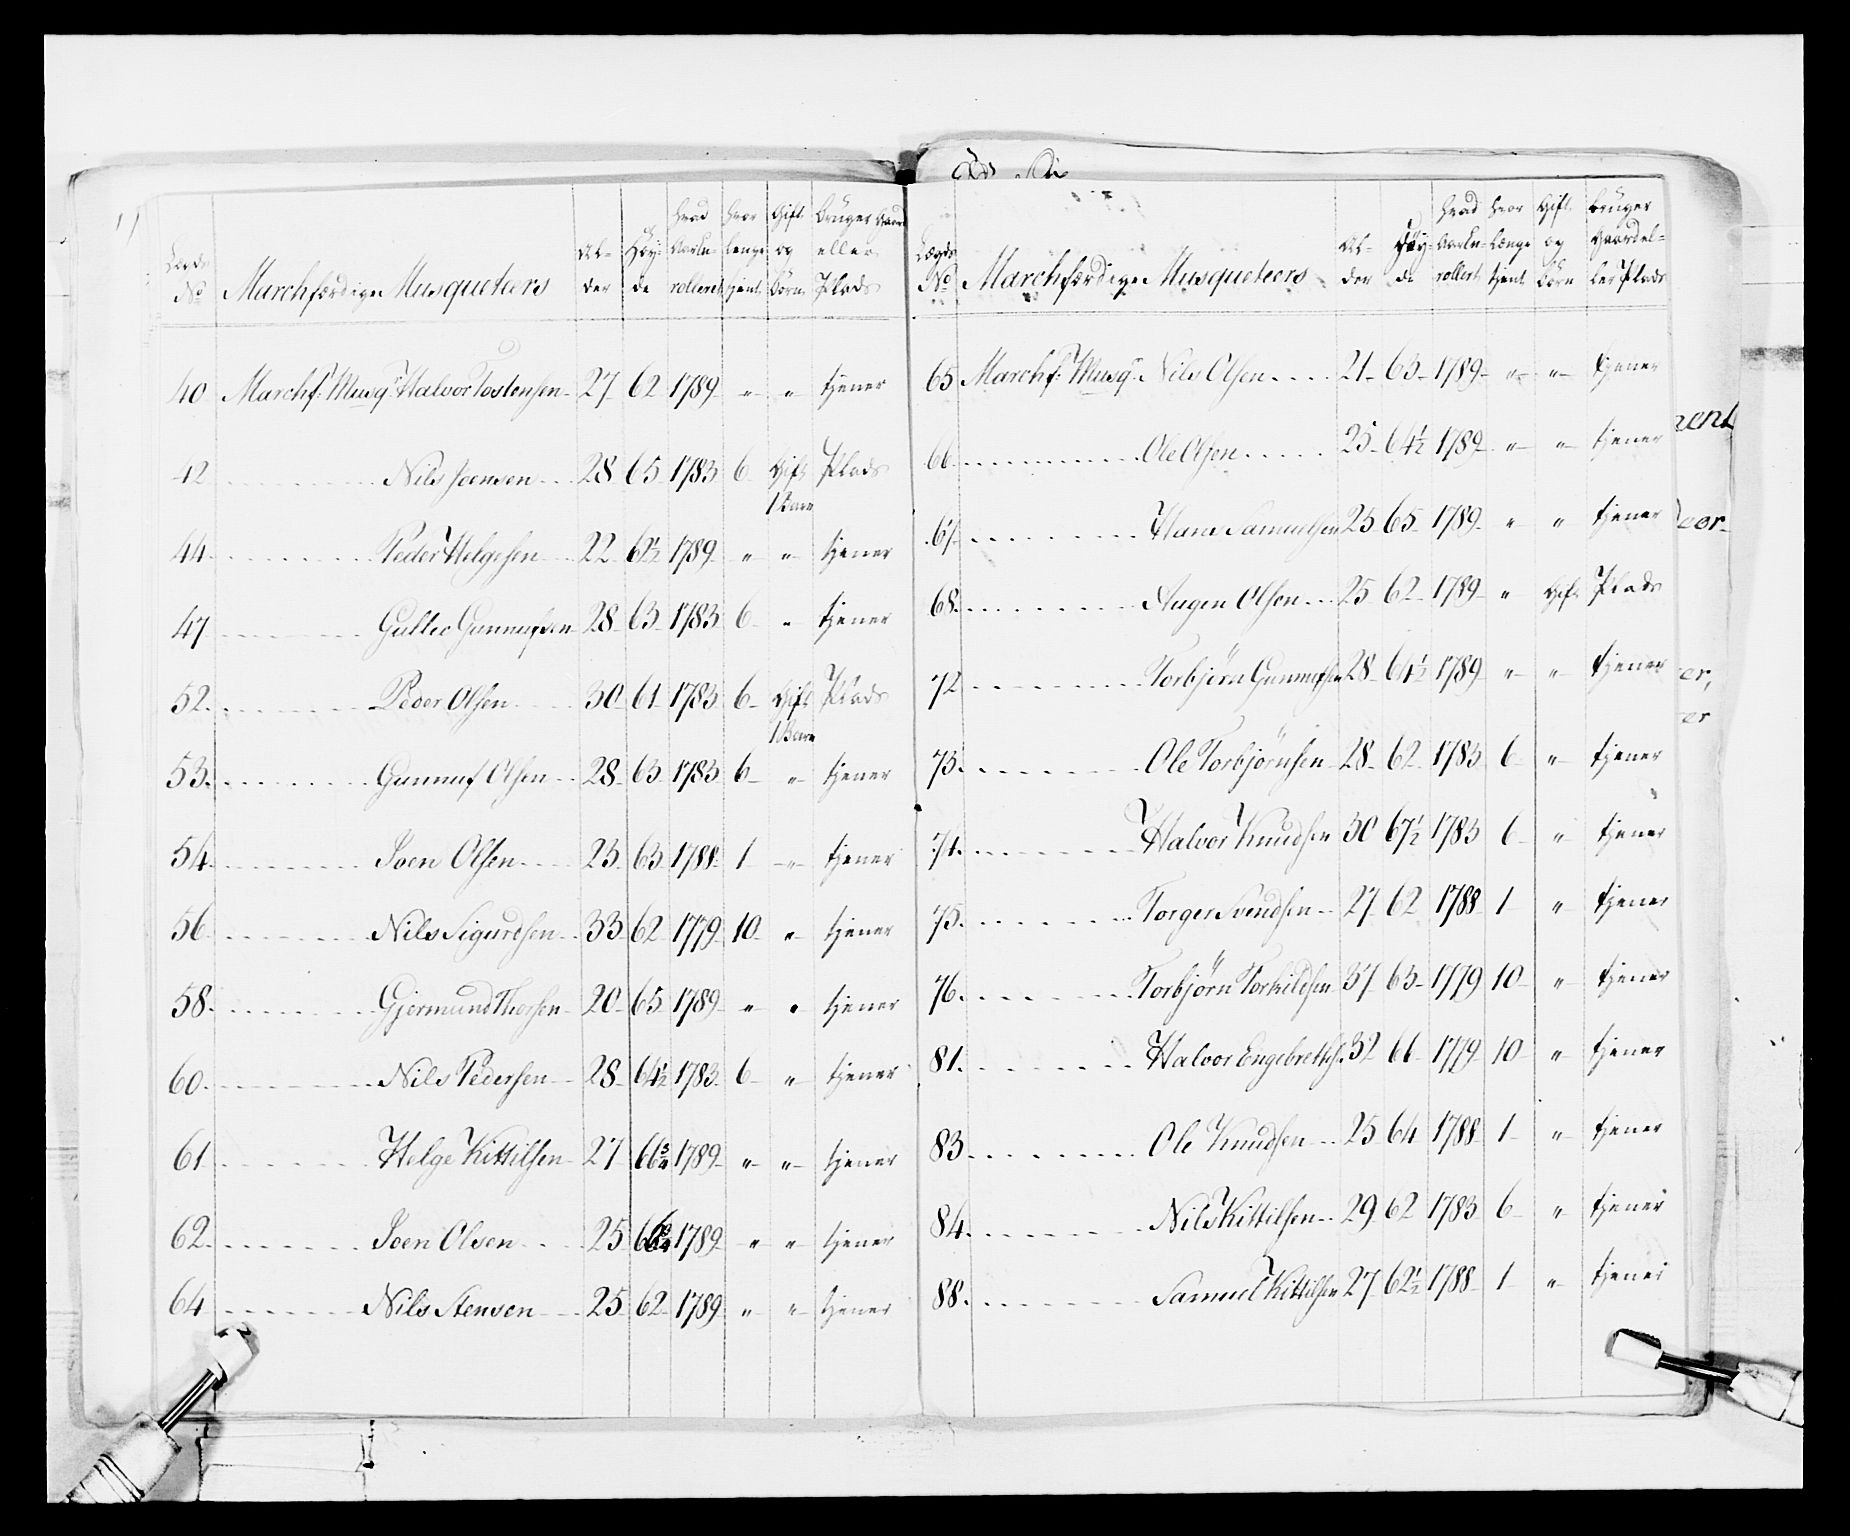 Lægds No Marchfærdige Musqueteers Alder Høyde hvad Aar Enrolleret hvor lenge tjent Gift og Børn bruger Gaard eller Plads
40 Marchf: Musq: Halvor Tostensen 27 62 1789 " " tjener
42 Nils Joensen 28 65 1783 6 Gift 1 Barn Plads
44 Peder Helgesen 22 62½ 1789 " " tjener
47 Gullec Gunnufsen 28 63 1783 6 " tjener
52. Peder Olsen 30 61 1783 6 Gift 1 Barn Plads
53. Gunnuf Olsen 28 63 1783 6 " tjener
54. Joen Olsen 23 63 1788 1 " tjener
56 Nils Sigurdsen 33 62 1779 10 " tjener
58. Gjermund Thorsen 20 65 1789 " " tjener
60. Nils Pedersen 28 64½ 1783 6 " tjener
61 Helge Kittilsen 27 66¾ 1789 " " tjener
62. Joen Olsen 25 1789 " " tjener
64 Nils Stensen 25 62 1789 " " tjener
Lægds No Marchfærdige Musqueteers Alder Høyde hvad Aar Enrollert hvor længe tjent Gift og børn bruger Gaard eller Plads
65 Marchf: Musq: Nils Olsen 21 63 1789 " " tjener
66. Ole Olsen 25 64½ 1789 " " tjener
67. Hans Samuelsen 25 65 1789 " " tjener
68. Augen Olsen 25 62 1789 " Gift Plads
72 Torbjørn Gunnufsen 28 64½ 1789 " " tjener
73. Ole Torbjørnsen 28 62 1783 6 " tjener
74. Halvor Knudsen 30 67½ 1783 6 " tjener
75. Torger Svendsen 27 62 1788 1 " tjener
76. Torbjørn Torkildsen 37 63 1779 10 " tjener
81. Halvor Engebrethsen 32 66 1779 10 " tjener
83. Ole Knudsen 25 64 1788 1 " tjener
84. Nils Kittilsen 29 62 1783 6 " tjener
88. Samuel Kittilsen 27 62½ 1788 1 " tjener